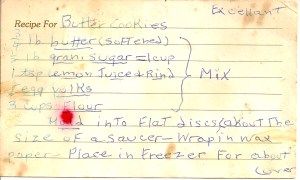 Excellent
Recipe For Butter Cookies
lb butter (softened)
lb gran. sugar = 1 cup
1 tsp lemon Juice + Rind
egg yolks
Mix
3 cups Flour
into flat discs (about the
size of a saucer - Wrap in wax
paper - Place in Freezer for about
(over